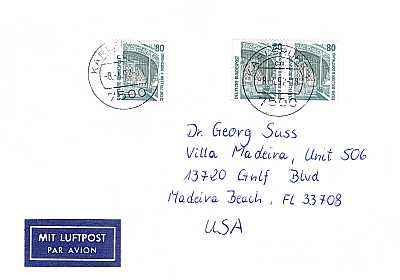 80
80
80
DEUTSCHE BUNDESPOST
KARLSRUHE
7500
Dr. Georg Suss
Villa Madeira, Unit 506
13720 Gulf Blvd
Madeira Beach, FL 33708
USA
MIT LUFTPOST
PAR AVION